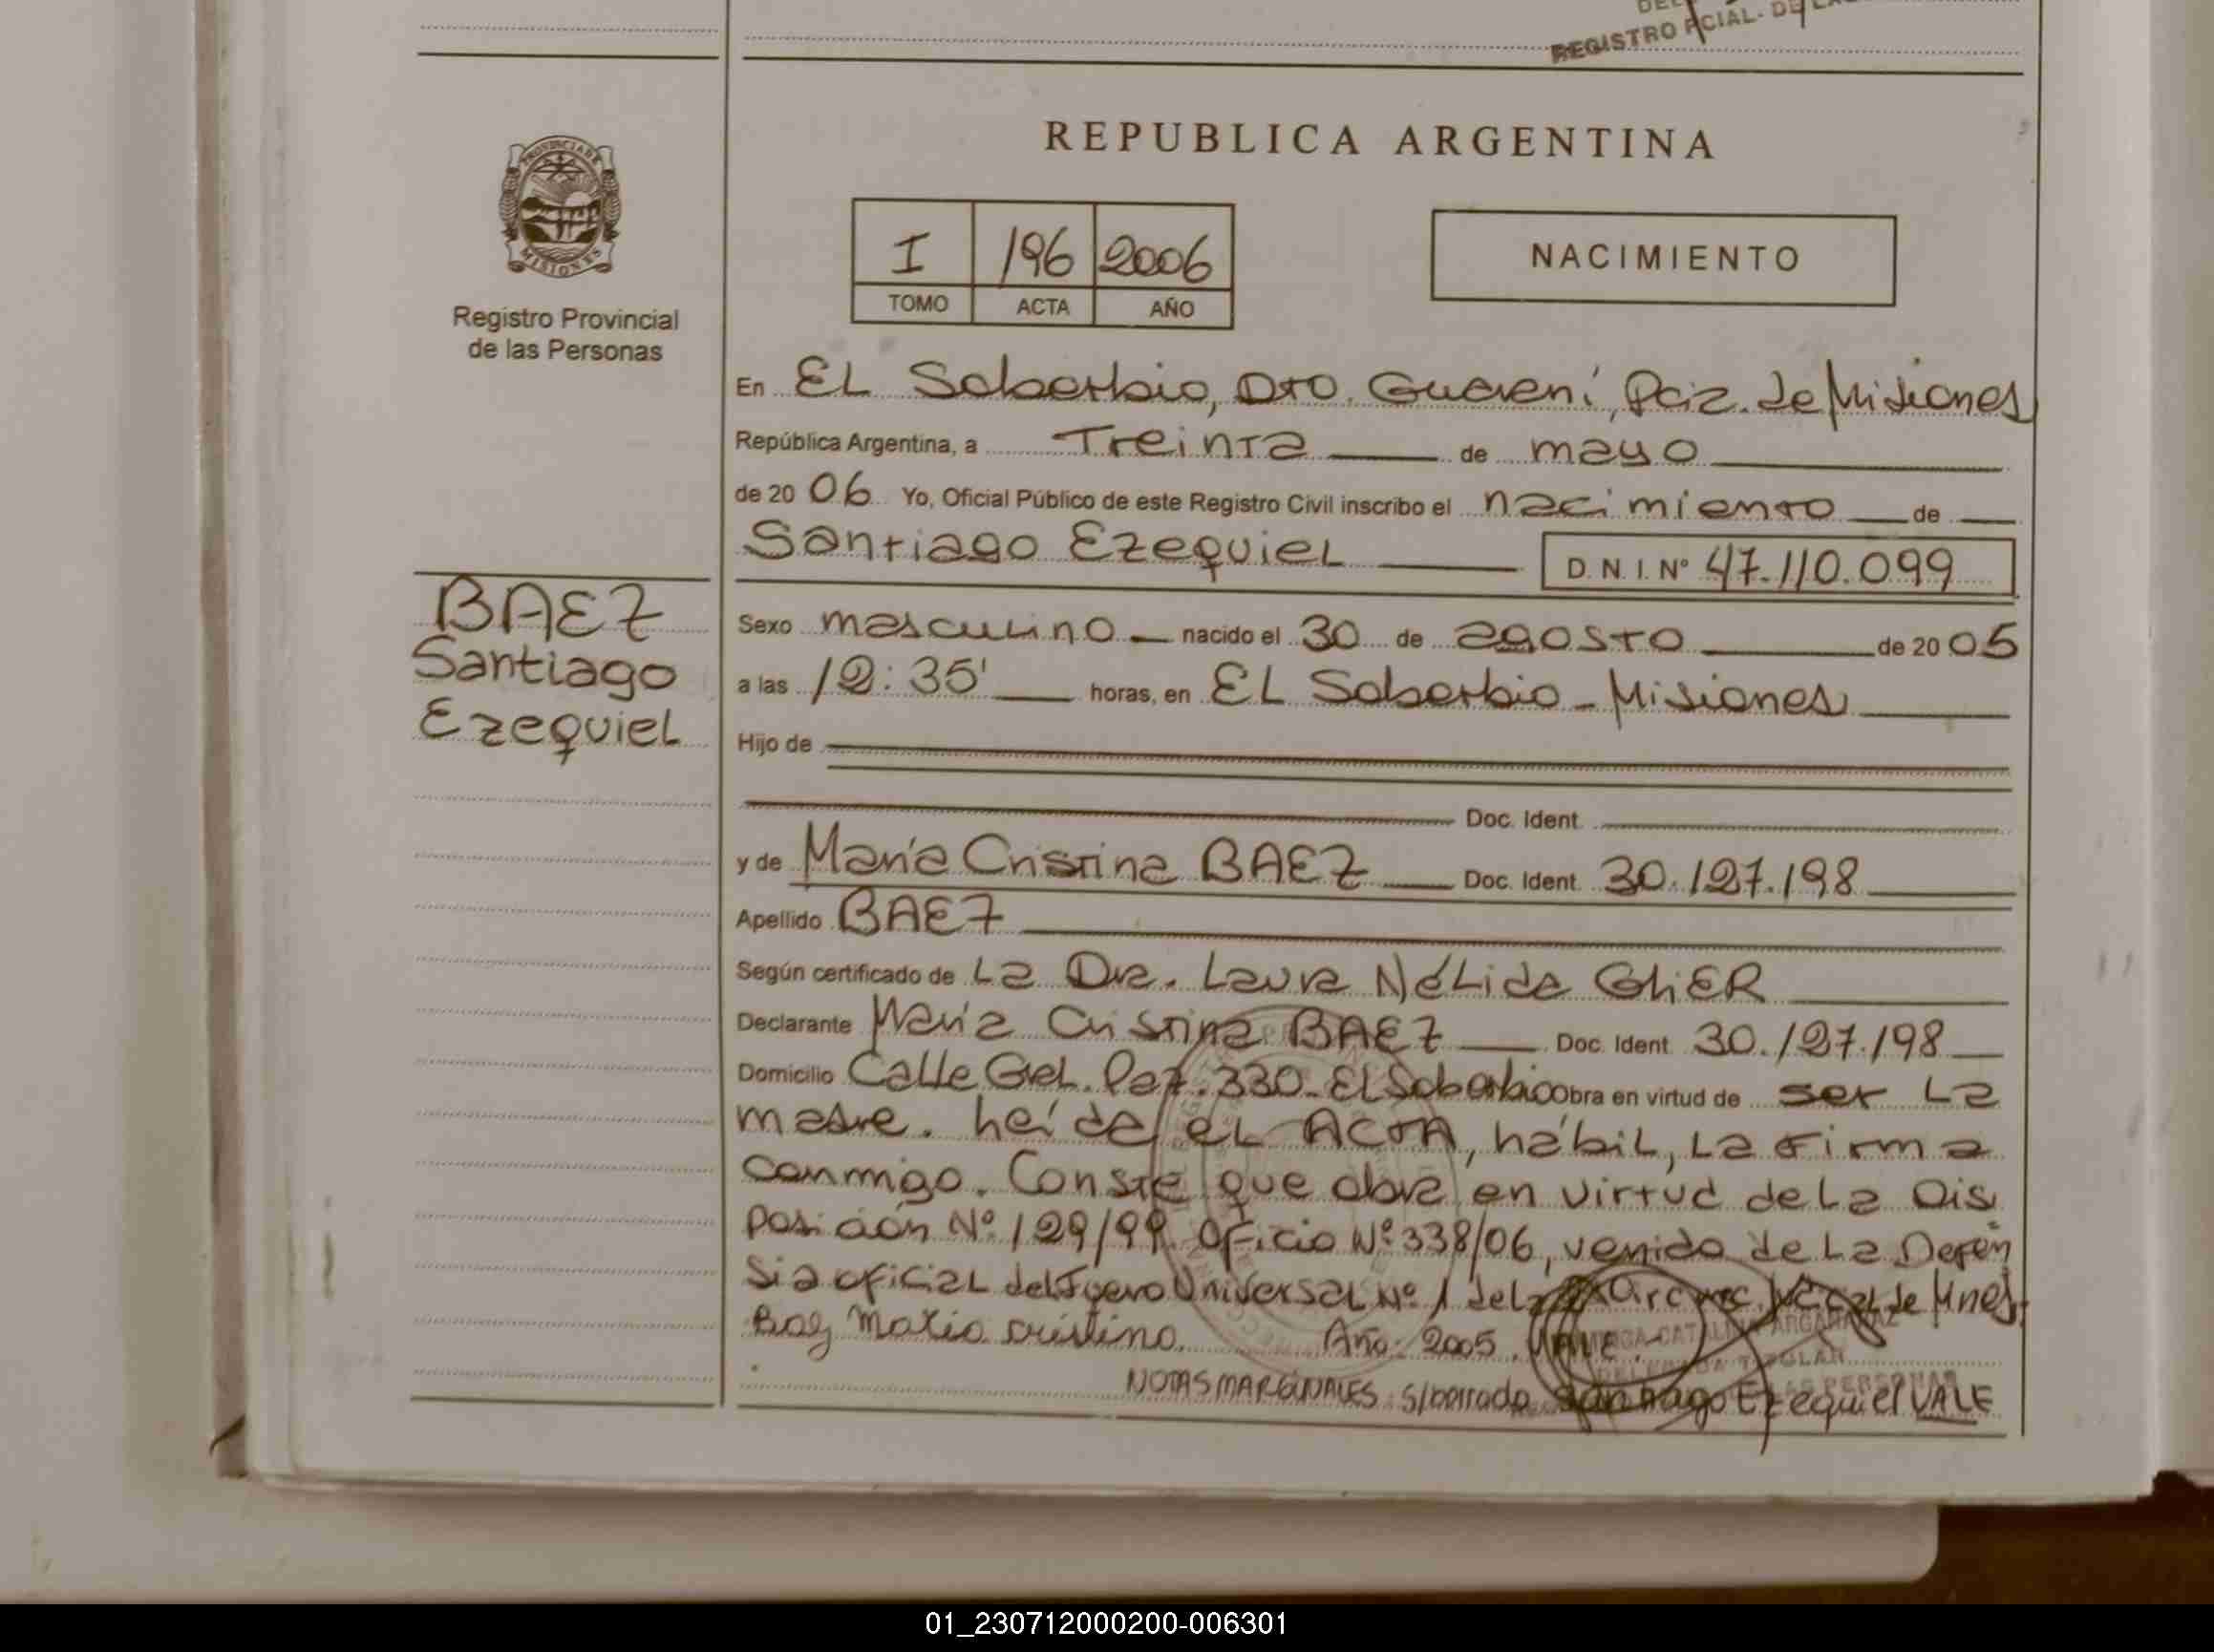 REGISTRO PCIAL. DE LA
REPUBLICA ARGENTINA
PROVINCIA DE
MISIONES
Registro Provincial
de las Personas
I 196 2006
TOMO ACTA AÑO
NACIMIENTO
En EL Soberbio, Dto. Guaraní, Pcia. de Misiones
República Argentina, a Treinta de mayo
de 2006 Yo, Oficial Público de este Registro Civil inscribo el nacimiento de
Santiago Ezequiel D.N.I. Nº 47.110.099
BAEZ
Santiago
Ezequiel
Sexo masculino nacido el 30 de agosto de 2005
a las 12:35' horas, en EL Soberbio - Misiones
Hijo de
Doc. Ident.
y de María Cristina BAEZ Doc. Ident. 30.127.198
Apellido BAEZ
Según certificado de La Dra. Laura Nélida GhiER
Declarante María Cristina BAEZ Doc. Ident. 30.127.198
Domicilio Calle Gral. Paz. 330 - El Soberbio Obra en virtud de ser La
madre. Leída el ACTA, hábil, La firma
conmigo. Conste que obra en virtud de La Dis
posición Nº 129/99. Oficio Nº 338/06, venido de La Defen
sia oficial del Fuero Universal Nº 1 de la
Año: 2005. VALE.
NOTAS MARGINALES: S/borrado Santiago Ezequiel VALE
01_230712000200-006301